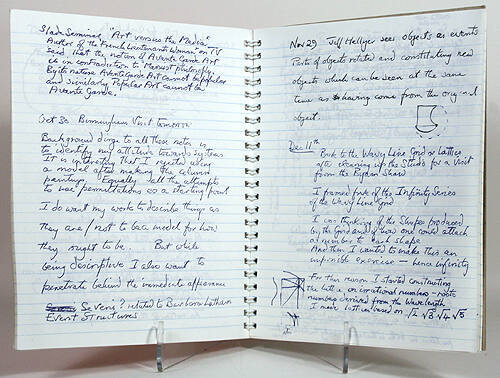 Slade Seminar, "Art versus the Media"
Author of the French Lieutenants Woman" on TV
said that the notion of Avante Garde Art
is in contradiction to Marxist philosophy
By its nature Avante Garde Art cannot be popular
and similarly Popular Art cannot be
Avante Garde.
Oct 30 Birmingham Visit tomorrow
Background dirge to all these notes is
to identify my attitude towards systems
It is interesting that I rejected using
a model after making the
painting. Equally with the attempts
to use permutations as a starting point
I do want my work to describe things as
They are / not to be a model for how
they ought to be. But while
being descriptive I also want to
penetrate behind the immediate appearance
Sevens? related to Barbara Latham
Event Structures
Nov 29 Jeff Hellyer sees objects as events
Parts of objects rotated and constituting new
objects which can be seen at the same
time as having come from the original
object.
Dec 11th
Back to the Wavy Line Grid or Lattice
after cleaning up the Studio for a visit
from the
I framed first of the Infinity Series
of the Wavy Line Grid
I was thinking of the Shapes produced
by the Grid and if one could attach
a number to each shape
And then I wanted to make this an
infinite exercise – hence infinity
For this reason I started constructing
the lattice on irrational numbers – roots
numbers derived from the Wavelength
I made lattices based on √2 √3 √4 √5